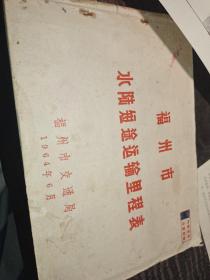 福州市
水陆短途运输里程表
福州市交通局
1964年6月